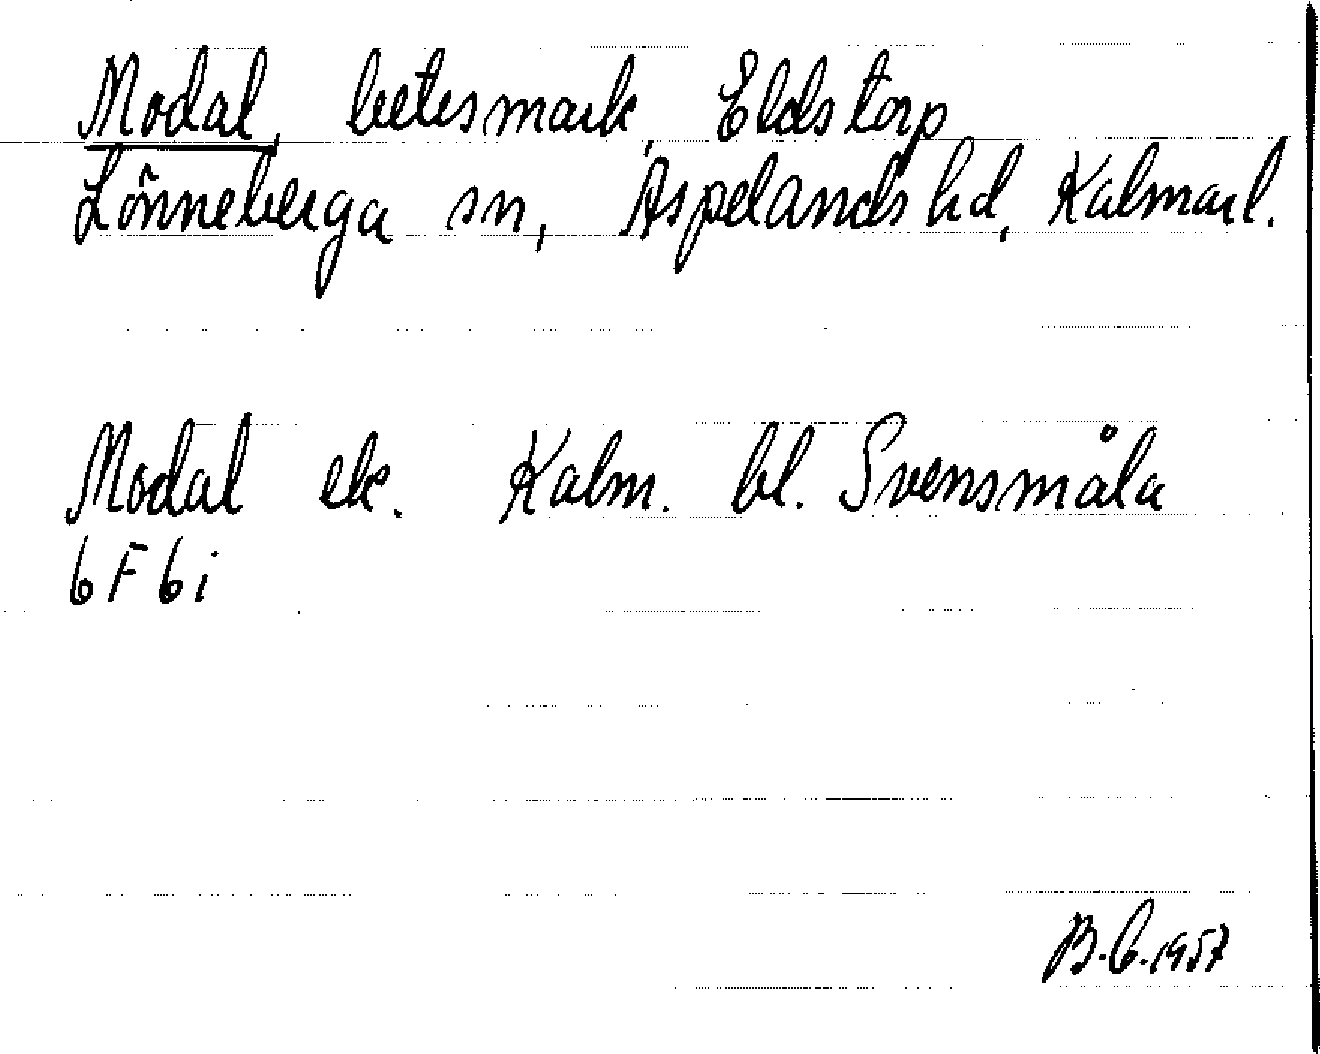 Modal, betesmark, Eldstorp
Lönneberga sn, Aspelands hd, Kalmarl.
Modal ek. Kalm. bl. Svensmåla
6F6i
B.C.1957